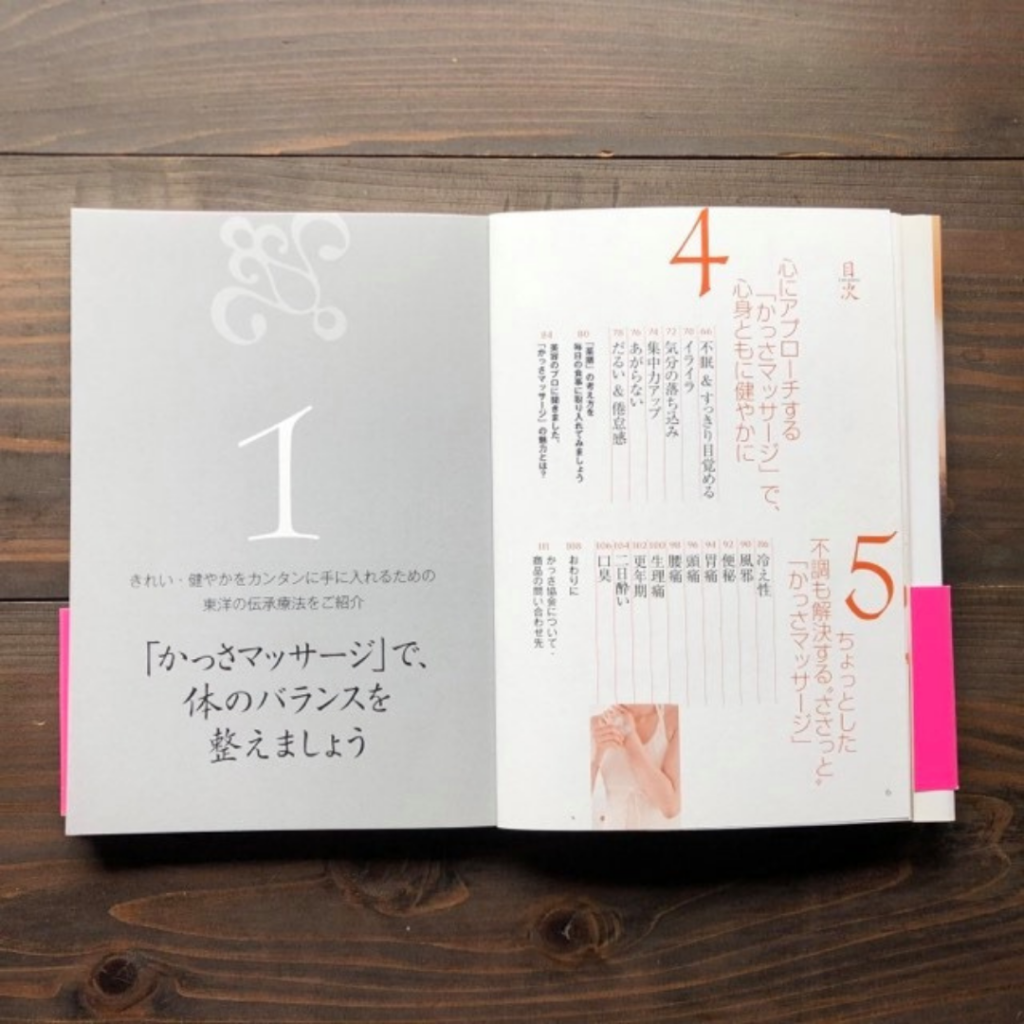 目次
4
心にアプローチする
「かっさマッサージ」で、
心身ともに健やかに
66 不眠 & すっきり目覚める
70 イライラ
72 気分の落ち込み
74 集中力アップ
76 あがらない
78 だるい & 倦怠感
80 「薬膳」の考え方を
毎日の食事に取り入れてみましょう
84 美容のプロに聞きました、
「かっさマッサージ」の魅力とは?
5
ちょっとした
不調も解決する“ささっと”
「かっさマッサージ」
86 冷え性
90 風邪
92 便秘
94 胃痛
96 頭痛
98 腰痛
100 生理痛
102 更年期
104 二日酔い
106 口臭
108 おわりに
111 かっさ協会について・
商品の問い合わせ先
6
1
きれい・健やかをカンタンに手に入れるための
東洋の伝承療法をご紹介
「かっさマッサージ」で、
体のバランスを
整えましょう